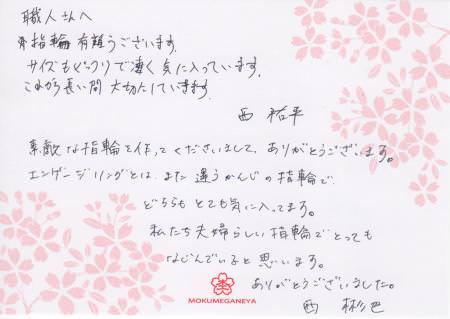 職人さんへ
指輪有難うございます。
サイズもぴったりで凄く気に入っています。
これから長い間大切にしていきます。
西 祐平
素敵な指輪を作ってくださいまして、ありがとうございます。
エンゲージリングとは、また違うかんじの指輪で
どちらもとても気に入ってます。
私たち夫婦らしい指輪でとっても
なじんでいると思います。
ありがとうございました。
西
MOKUMEGANEYA